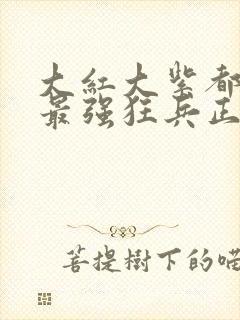 大红大紫都
最强狂兵正
菩提樹下的喵